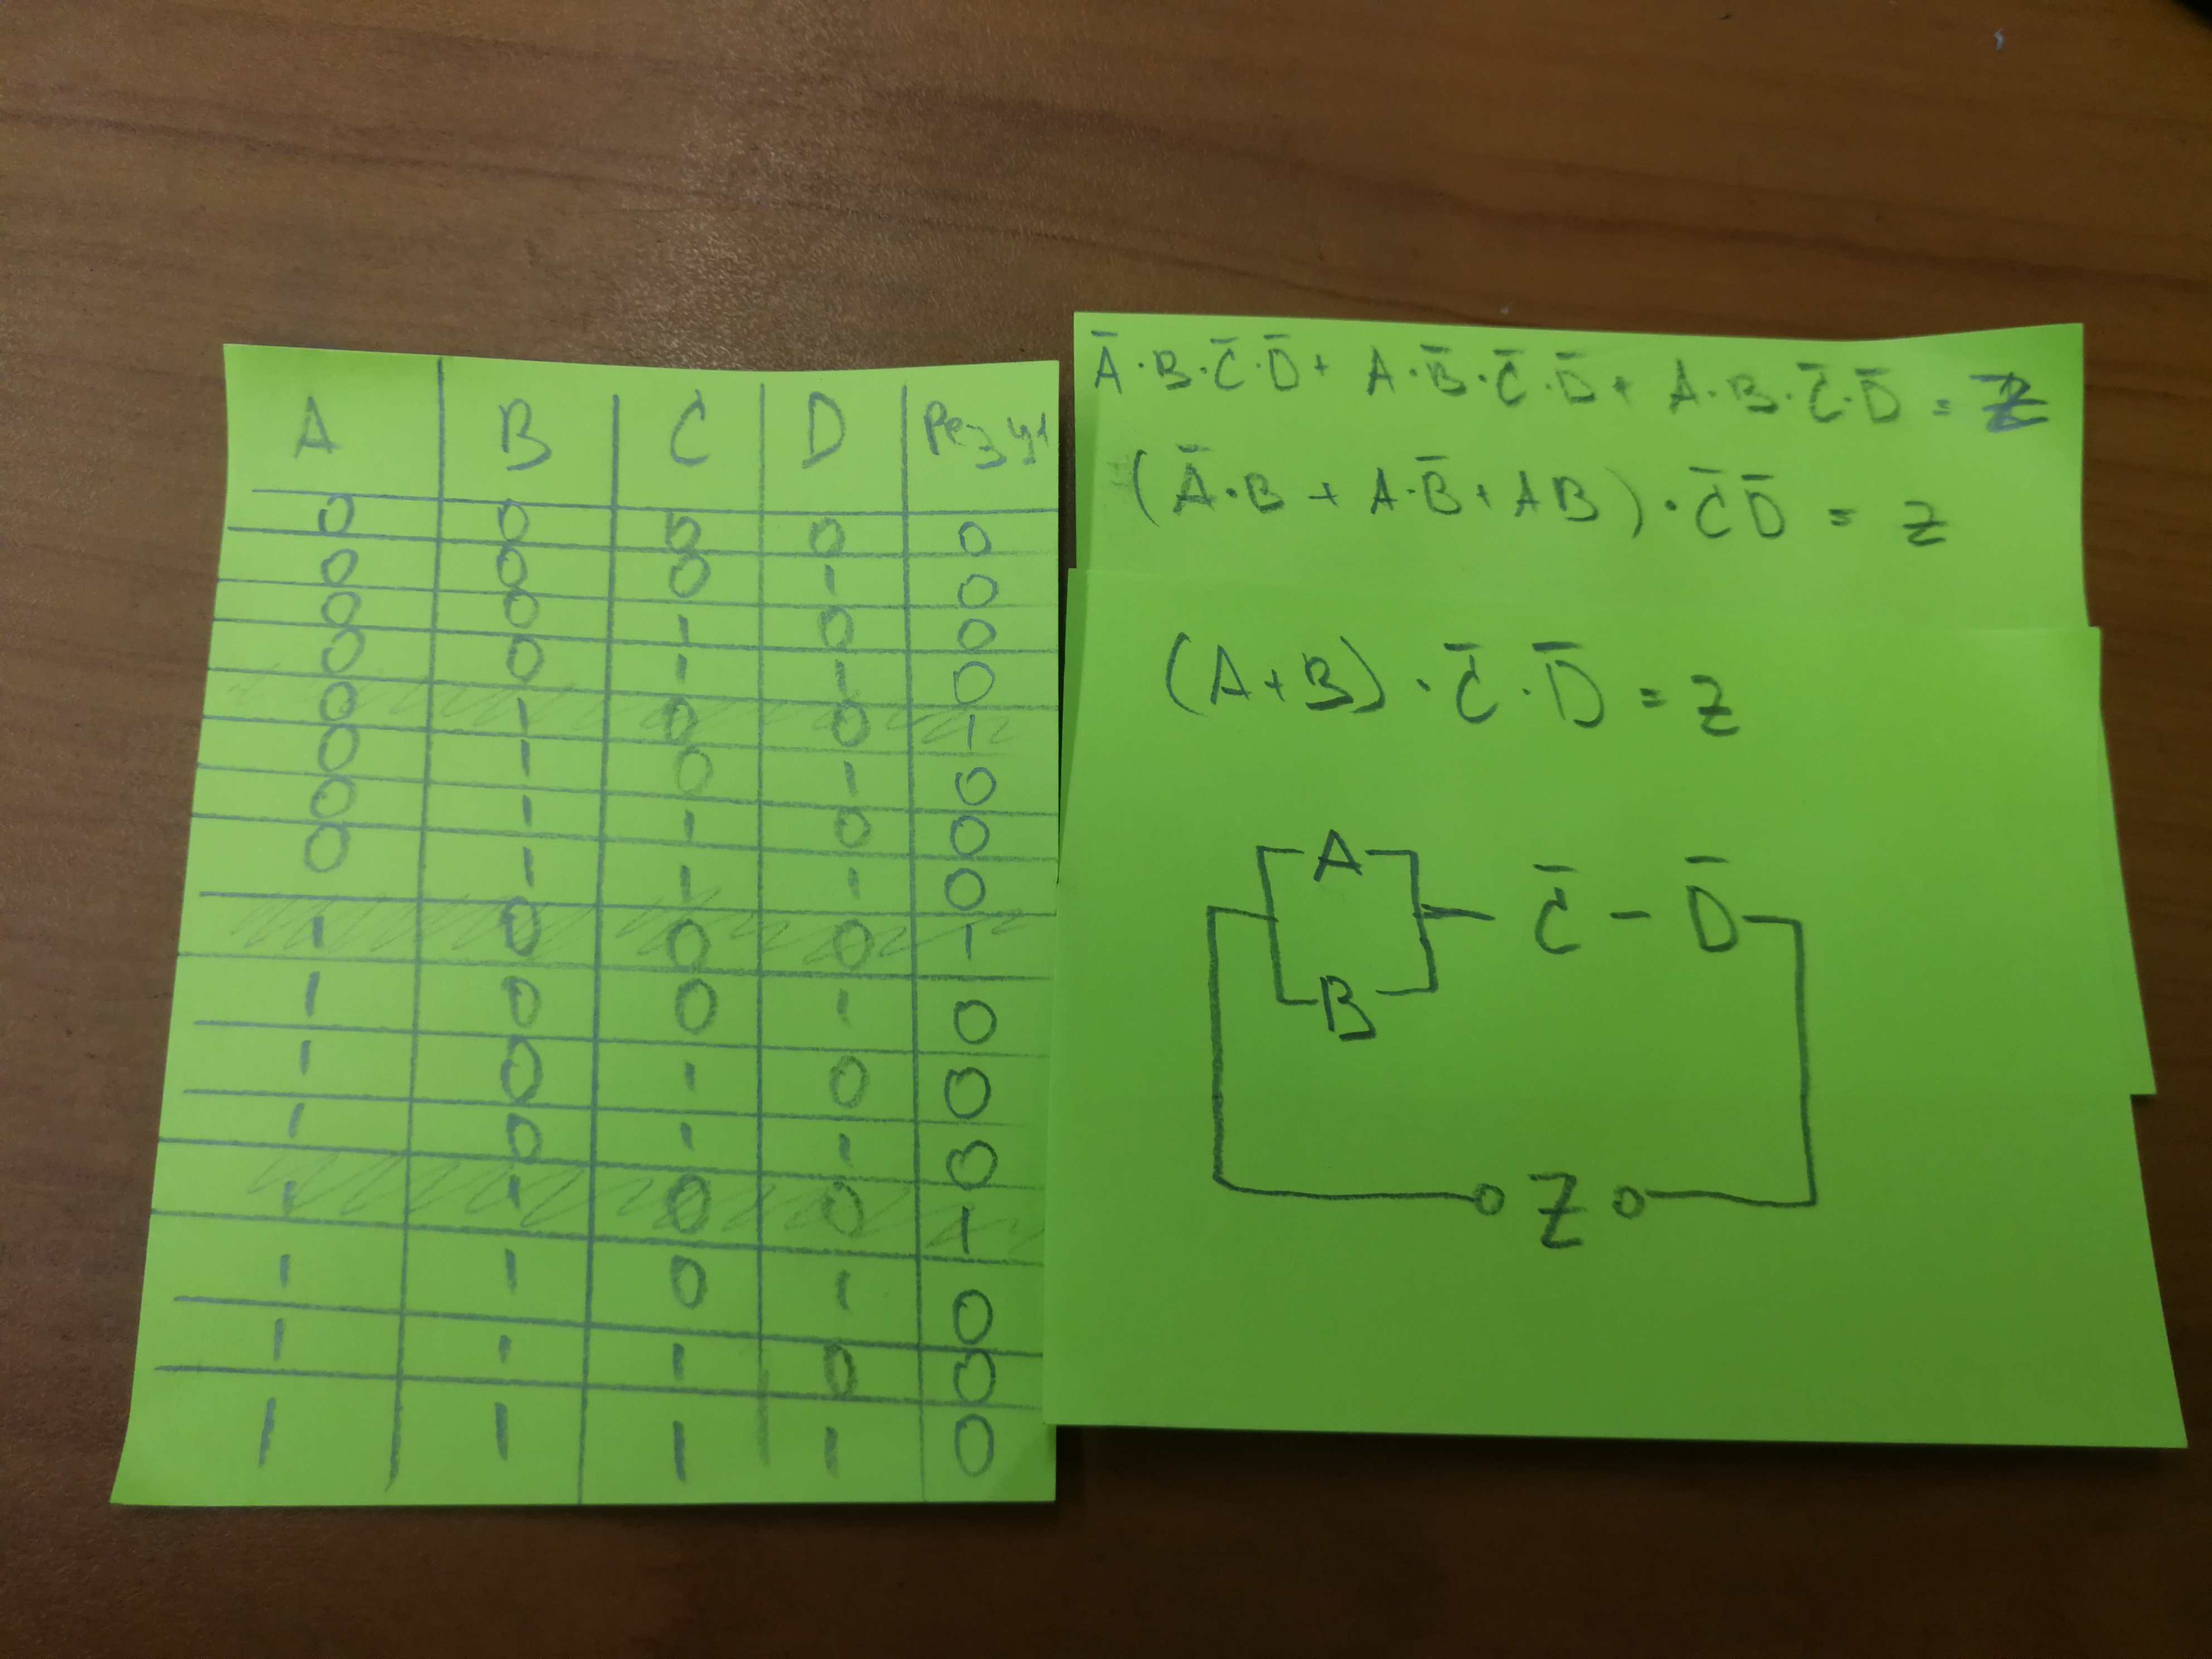 A B C D Резул
0 0 0 0 0
0 0 0 1 0
0 0 1 0 0
0 0 1 1 0
0 1 0 0 1
0 1 0 1 0
0 1 1 0 0
0 1 1 1 0
1 0 0 0 1
1 0 0 1 0
1 0 1 0 0
1 0 1 1 0
1 1 0 0 1
1 1 0 1 0
1 1 1 0 0
1 1 1 1 0
Ā·B·C̄·D̄ + A·B̄·C̄·D̄ + A·B·C̄·D̄ = Z
(Ā·B + A·B̄ + AB)·C̄D̄ = Z
(A+B)·C̄·D̄ = Z
A
C̄ - D̄
B
Z